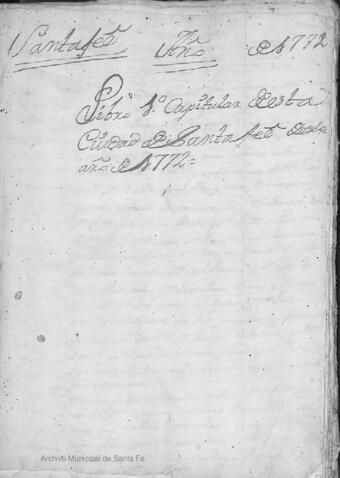 Santafeé Año de 1772
Libro 1º Capitular de esta
Ciudad de Santa feé deste
año de 1772=
Archivo Municipal de Santa Fe